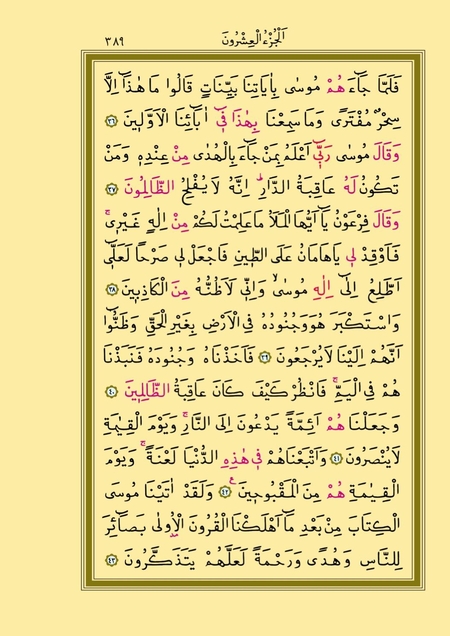 اَلْجُزْءُ الْعِشْرُونَ
٣٨٩
فَلَمَّا جَٓاءَهُمْ مُوسٰى بِاٰيَاتِنَا بَيِّنَاتٍ قَالُوا مَا هٰذَٓا اِلَّا
سِحْرٌ مُفْتَرًى وَمَا سَمِعْنَا بِهٰذَا ف۪ٓي اٰبَٓائِنَا الْاَوَّل۪ينَ ﴿٣٦﴾
وَقَالَ مُوسٰى رَبّ۪ٓي اَعْلَمُ بِمَنْ جَٓاءَ بِالْهُدٰى مِنْ عِنْدِه۪ وَمَنْ
تَكُونُ لَهُ عَاقِبَةُ الدَّارِۜ اِنَّهُ لَا يُفْلِحُ الظَّالِمُونَ ﴿٣٧﴾
وَقَالَ فِرْعَوْنُ يَٓا اَيُّهَا الْمَلَاُ مَا عَلِمْتُ لَكُمْ مِنْ اِلٰهٍ غَيْر۪يۚ
فَاَوْقِدْ ل۪ي يَا هَامَانُ عَلَى الطّ۪ينِ فَاجْعَلْ ل۪ي صَرْحًا لَعَلّ۪ٓي
اَطَّلِعُ اِلٰٓى اِلٰهِ مُوسٰىۙ وَاِنّ۪ي لَاَظُنُّهُ مِنَ الْكَاذِب۪ينَ ﴿٣٨﴾
وَاسْتَكْبَرَ هُوَ وَجُنُودُهُ فِي الْاَرْضِ بِغَيْرِ الْحَقِّ وَظَنُّٓوا
اَنَّهُمْ اِلَيْنَا لَا يُرْجَعُونَ ﴿٣٩﴾ فَاَخَذْنَاهُ وَجُنُودَهُ فَنَبَذْنَا
هُمْ فِي الْيَمِّۚ فَانْظُرْ كَيْفَ كَانَ عَاقِبَةُ الظَّالِم۪ينَ ﴿٤٠﴾
وَجَعَلْنَاهُمْ اَئِمَّةً يَدْعُونَ اِلَى النَّارِۚ وَيَوْمَ الْقِيٰمَةِ
لَا يُنْصَرُونَ ﴿٤١﴾ وَاَتْبَعْنَاهُمْ ف۪ي هٰذِهِ الدُّنْيَا لَعْنَةًۚ وَيَوْمَ
الْقِيٰمَةِ هُمْ مِنَ الْمَقْبُوح۪ينَ۟ ﴿٤٢﴾ وَلَقَدْ اٰتَيْنَا مُوسَى
الْكِتَابَ مِنْ بَعْدِ مَٓا اَهْلَكْنَا الْقُرُونَ الْاُو۫لٰى بَصَٓائِرَ
لِلنَّاسِ وَهُدًى وَرَحْمَةً لَعَلَّهُمْ يَتَذَكَّرُونَ ﴿٤٣﴾